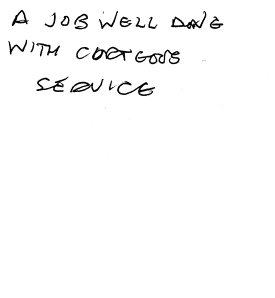 A JOB WELL DONE
WITH COURTEOUS
SERVICE